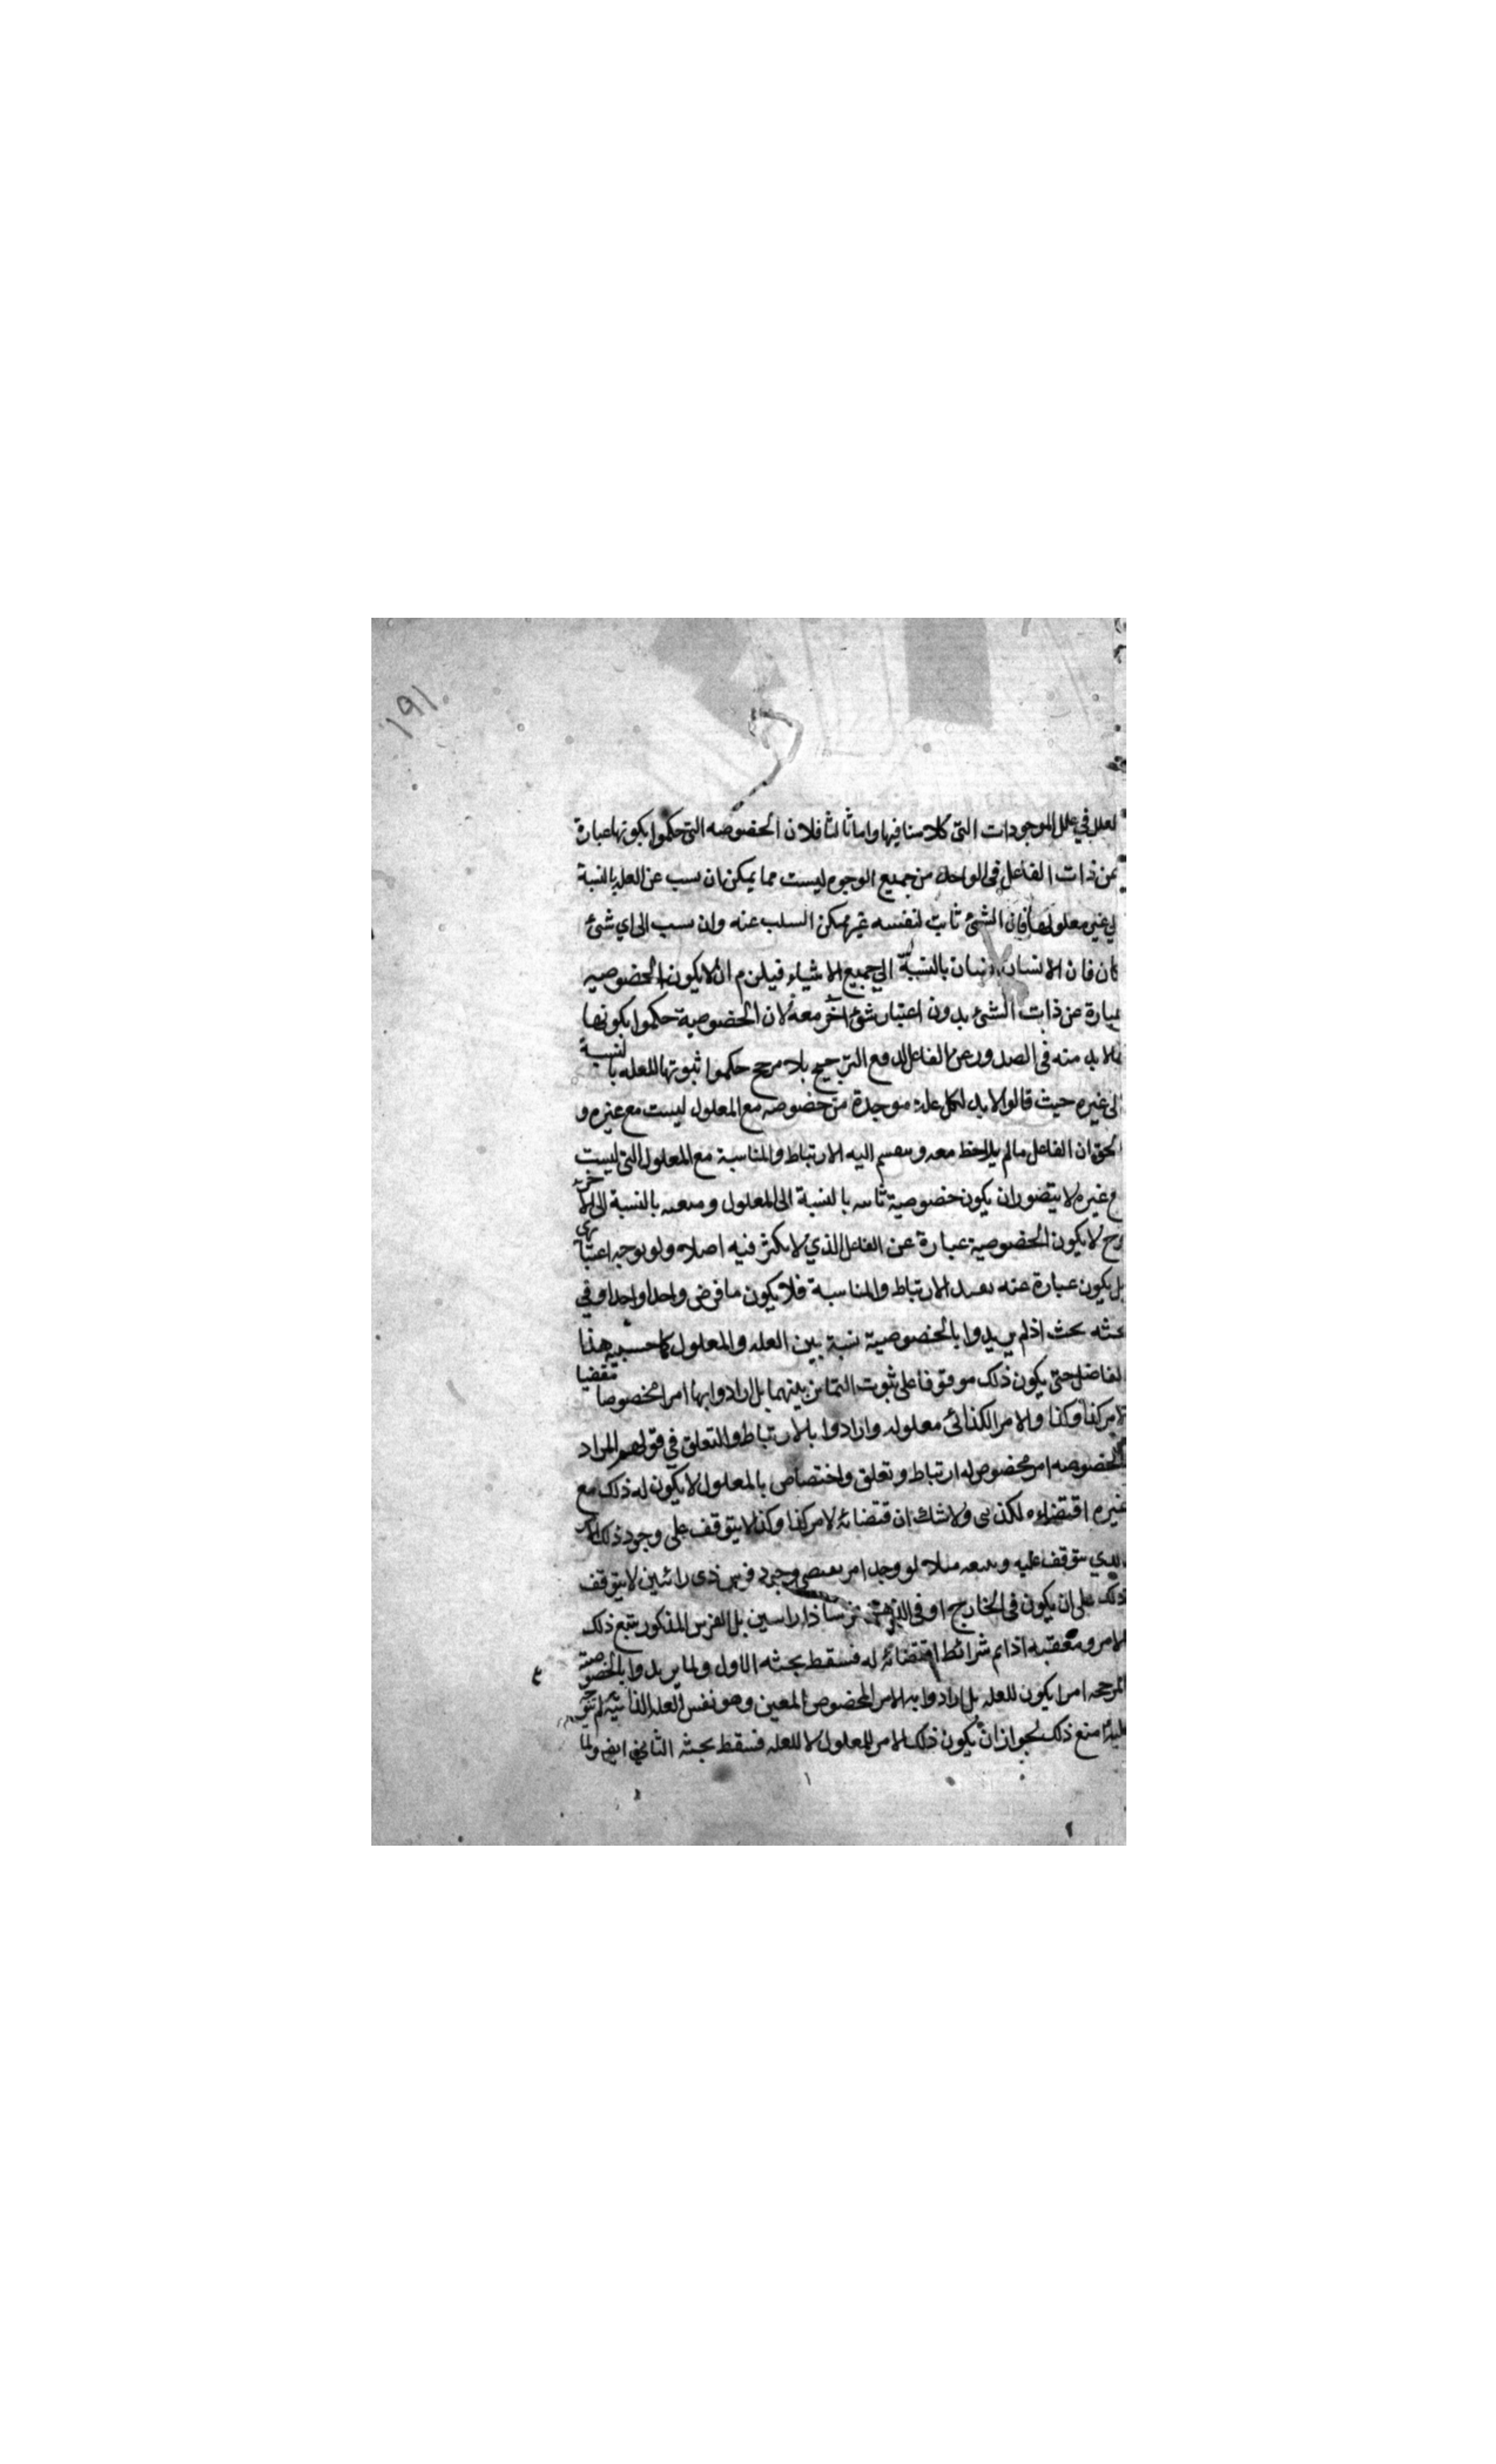 ١٩١
في علل الموجودات التى كلامنا فيها واما ثالثا فلان الخصوصه التى حكموا بكونها عبارة
عن ذات الفاعل فى الواحد من جميع الوجوه ليست مما يمكن ان سب عن العله بالنسبة
الي غير معلولها فان الشئ ثابت لنفسه غير ممكن السلب عنه وان سب الى اي شئ
كان فان الانسان بالنسبة الي جميع الاشياء فيلزم ان لا يكون الخصوصيه
عبارة عن ذات الشئ بدون اعتبار شئ آخر معه لان الخصوصية حكموا بكونها
مالابد منه فى الصدور عن الفاعل لدفع الترجيح بلا مرجح حكموا ثبوتها للعله بالنسبة
الى غيره حيث قالوا لابد لكل علة موجدة من خصوصه مع المعلول ليست مع غيره و
الحق ان الفاعل مالم يلاحظ معه وسضم اليه الارتباط والمناسبة مع المعلول التى ليست
مع غيره لا يتصور ان يكون خصوصية ثاسه بالنسبة الى المعلول ومنعىه بالنسبة الى الاخر
وح لا يكون الخصوصية عبارة عن الفاعل الذي لا تكثر فيه اصلا ولو بوجه اعتباري
بل يكون عبارة عنه بعىد الارتباط والمناسبة فلا يكون مافرض واحدا واحدا وفي
بحثه بحث اذ لم يريدوا بالخصوصية نسبة بين العله والمعلول كما حسبه هذا
الفاضل حتى يكون ذلك موقوفا على ثبوت التمايز بينهما بل ارادوا بها امرا مخصوصا مقتضيا
لامر كذا وكذا والامر الكذائى معلوله وارادوا بالارتباط والتعلق في قولهم المراد
بالخصوصه امر مخصوص له ارتباط وتعلق واختصاص بالمعلول لا يكون له ذلك مع
غيره اقتضاءه لكذى ولاشك ان قتضائه لامر كذا وكذا لا يتوقف على وجود ذلك
الذي ىتوقف عليه وىىىعه مثلا لو وجد امر ىقىضى وجود فرس ذى رائسين لا يتوقف
ذلك على ان يكون فى الخارج او فى الذهن فرسا ذا راسين بل الفرس المذكور يتبع ذلك
الامر ومعقبه اذا تم شرائط اقتضائه له فسقط بحثه الاول ولما لم يريدوا بالخصوصية
المرجحه امرا يكون للعله بل ارادوا به الامر المخصوص المعين وهو نفس العله الفائيه لم يتوجه
عليه منع ذلك لجواز ان يكون ذلك الامر للمعلول لا للعله فسقط بحثه الثاني ايض ولما